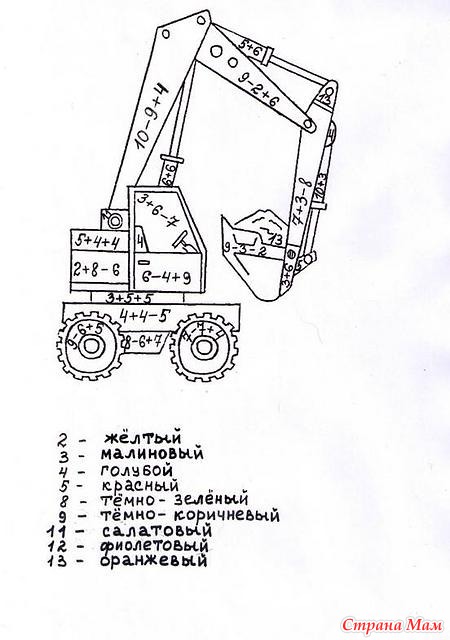 5+6
9-2+6
13
10-9+4
4
10+3
6+6
7+3-8
3+6-7
13
5+4+4
4
9-3-2
2+8-6
6-4+9
3+6
5
3+5+5
4+4-5
9-6+5
8-6+7
7-7+4
2 - жёлтый
3 - малиновый
4 - голубой
5 - красный
8 - тёмно-зелёный
9 - тёмно-коричневый
11 - салатовый
12 - фиолетовый
13 - оранжевый
Страна Мам